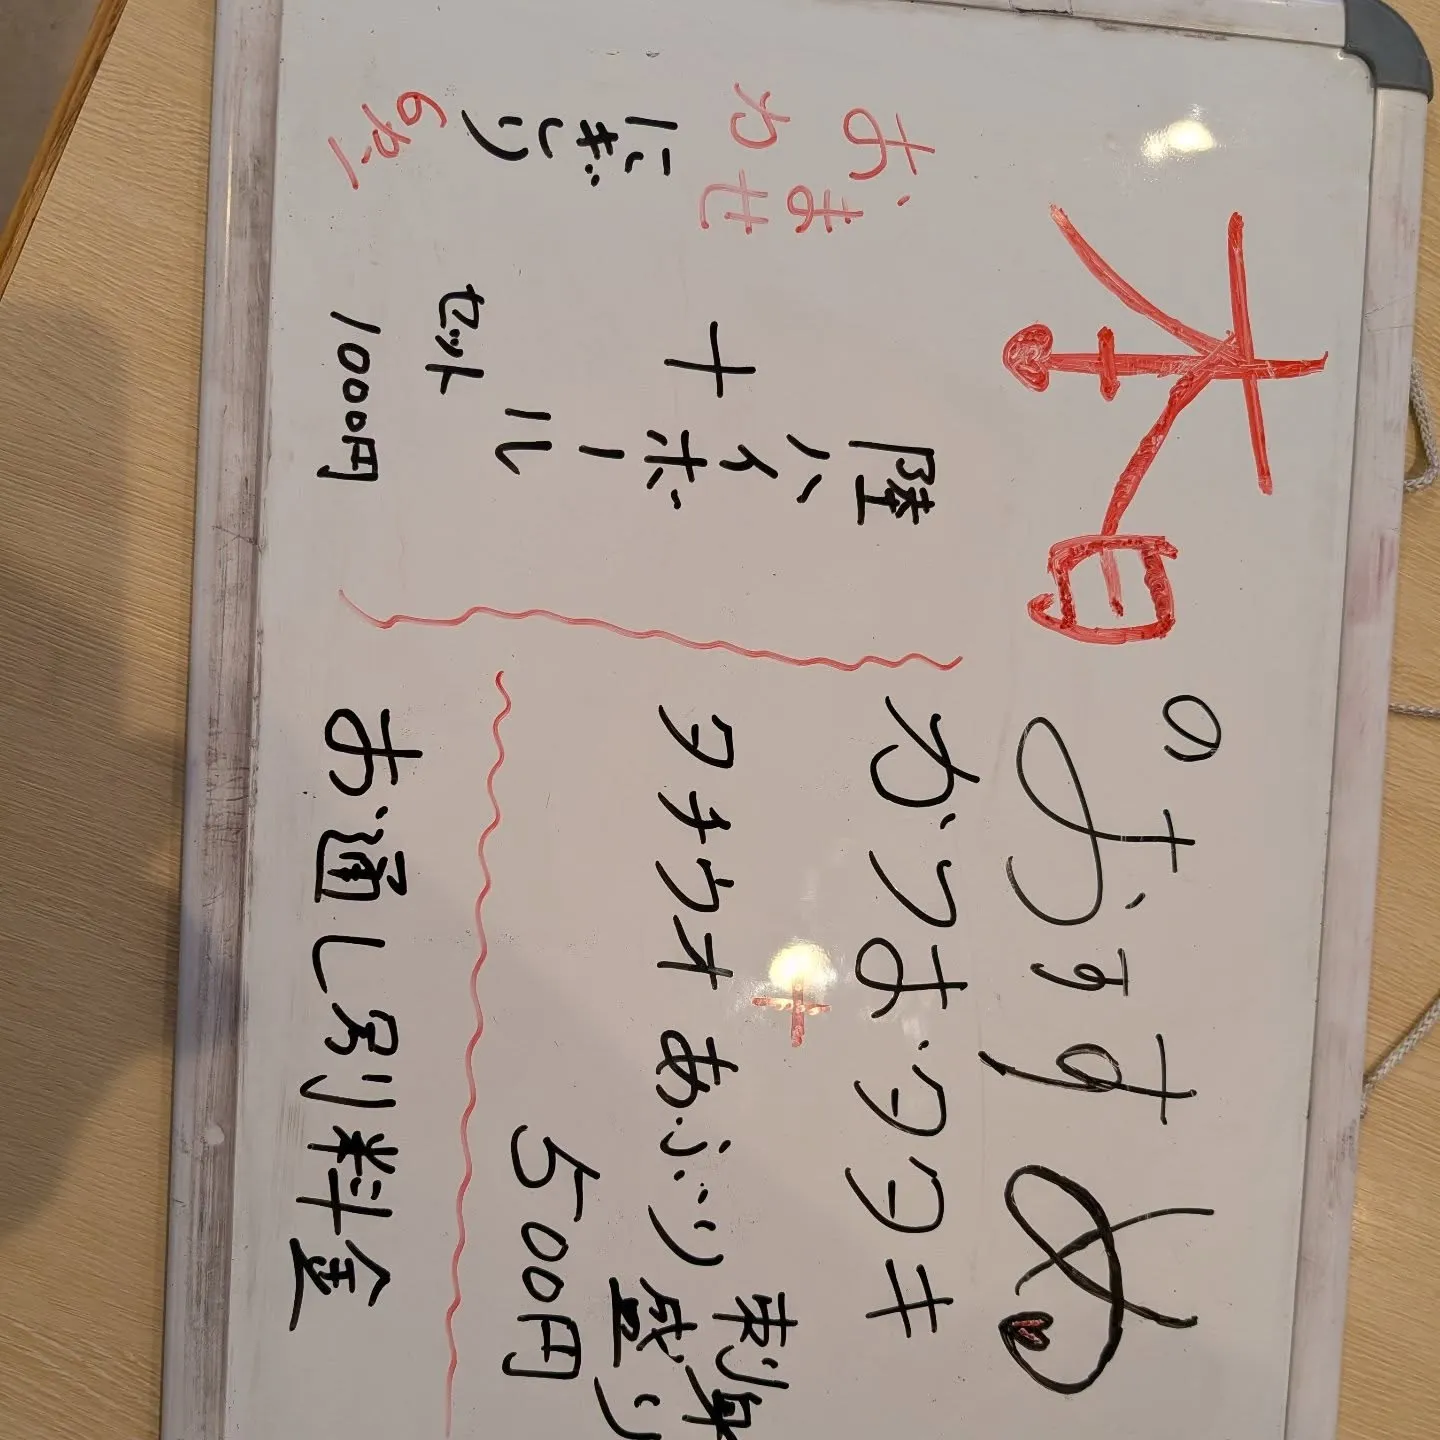 本日のおすすめ
おま
かせ
にぎり
+
陸ハイボール
セット
1000円
かつおタタキ
+
タチウオあぶり
刺身
盛り
500円
お通し別料金